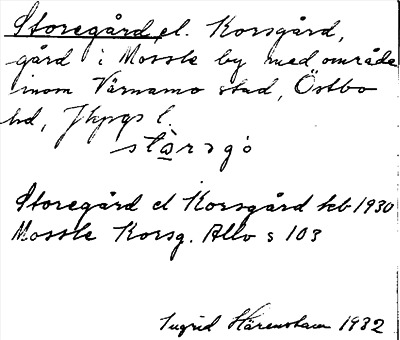 Storegård el. Korsgård,
gård i Mossle by med område
inom Värnamo stad, Östbo
hd, Jkpgs l.
stòrəgó
Storegård el Korsgård kb 1930
Mossle Korsg. Allv s 103
Ingrid 1932